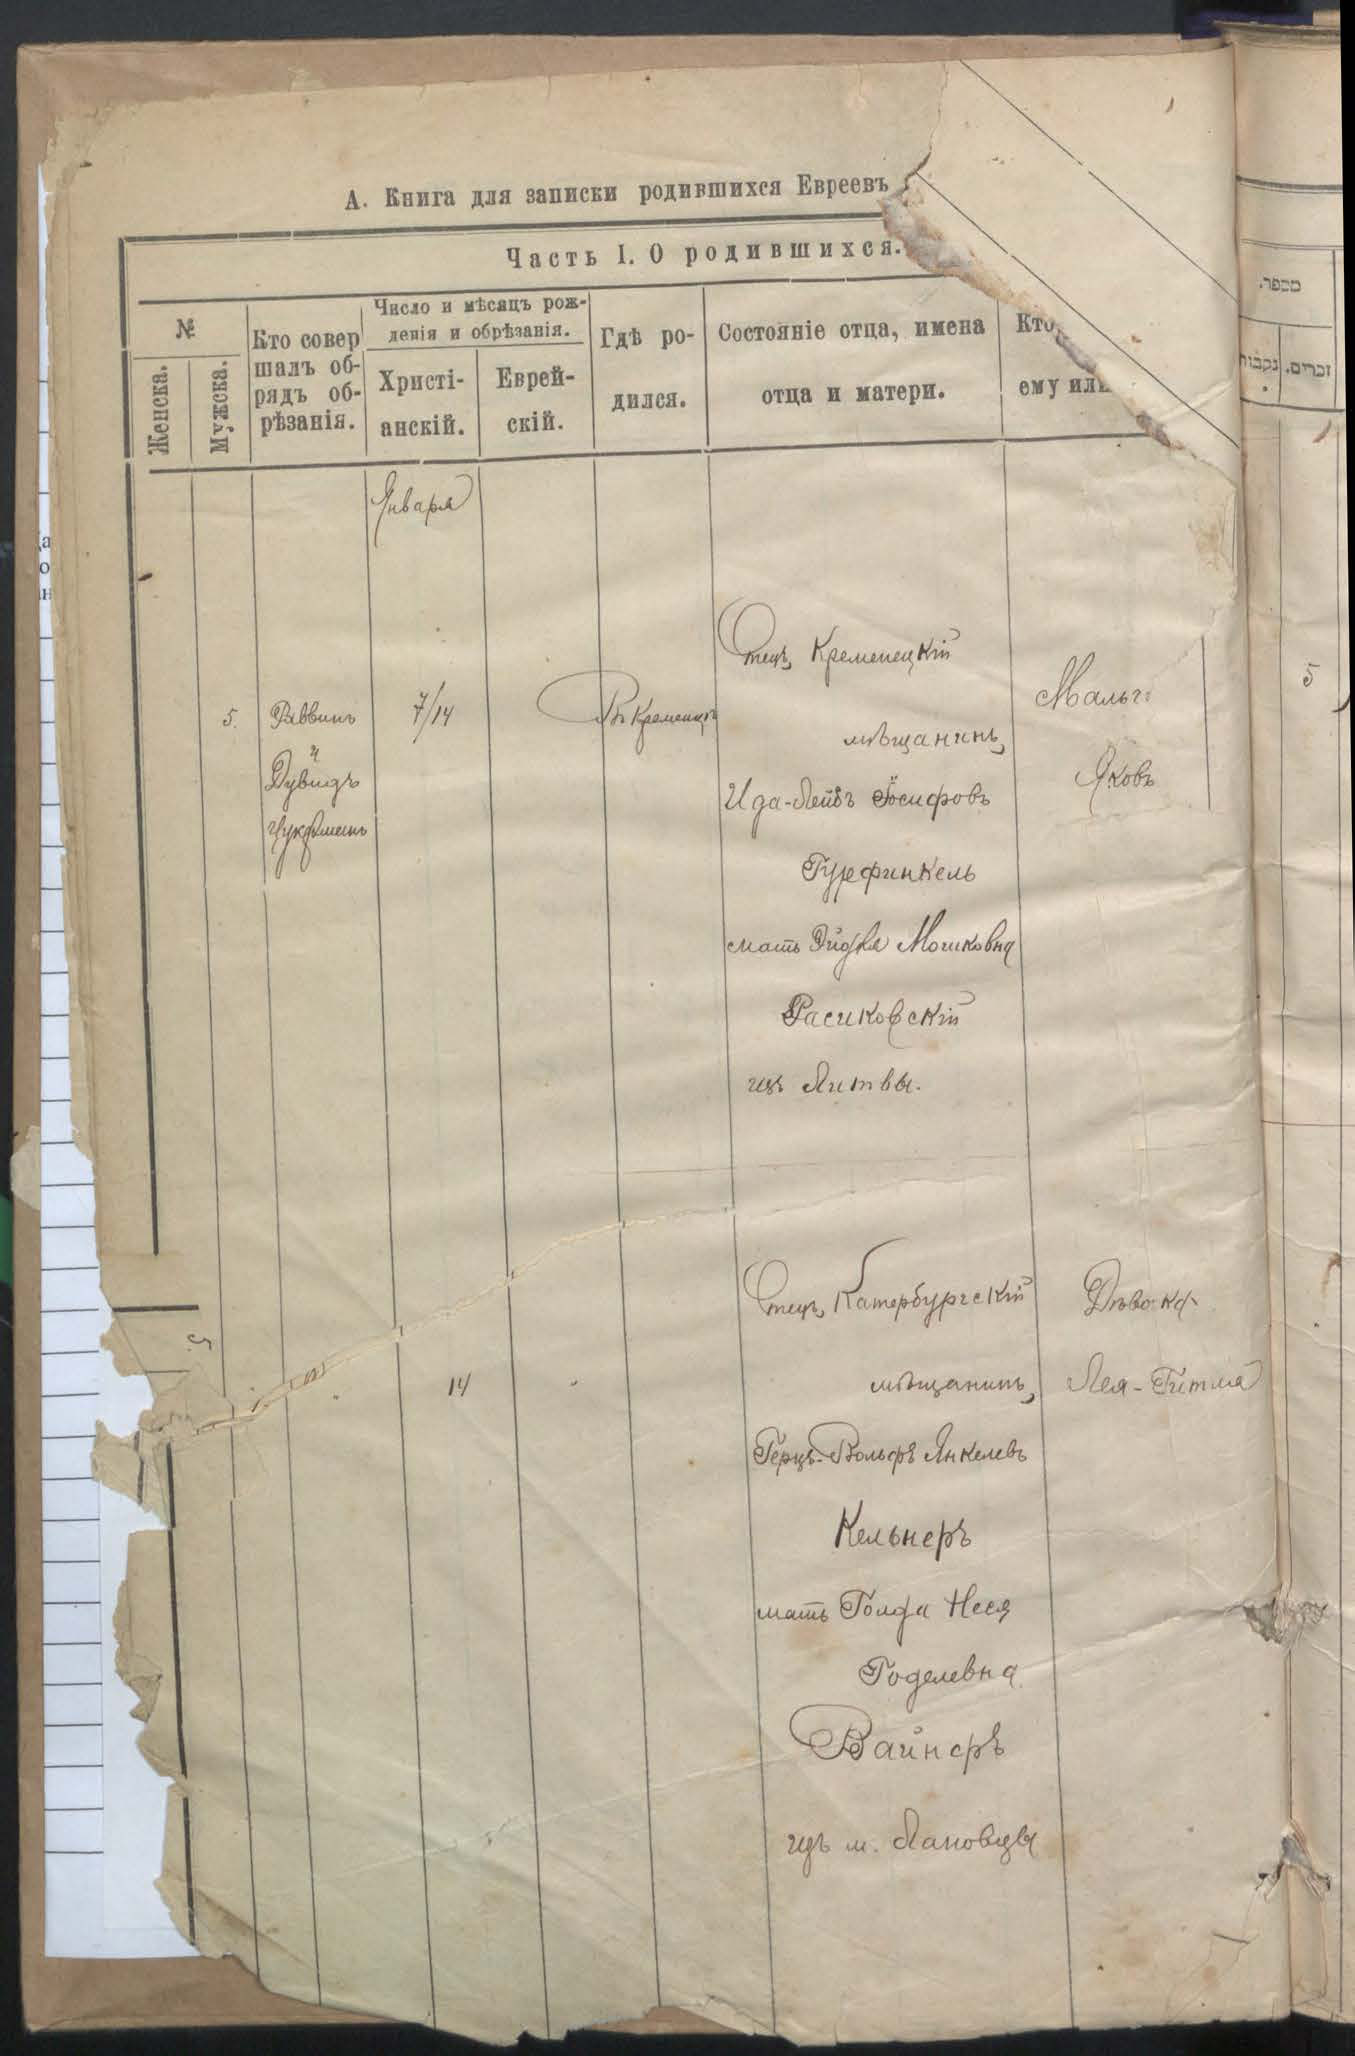 А. Книга для записки родившихся Евреевъ
Часть I. О родившихся.
№
Женска.
Мужска.
Кто совер
шалъ об-
рядъ об-
рѣзанія.
Число и мѣсяцъ рож-
денія и обрѣзанія.
Христі-
анскій.
Еврей-
скій.
Гдѣ ро-
дился.
Состояніе отца, имена
отца и матери.
Кто
ему или
מספר.
נקבות
זכרים.
Января
5.
Раввинъ
и
Дувидъ
7/14
Въ Кременцѣ
Отецъ Кременецкій
мѣщанинъ,
Ида-Лейбъ Іосифовъ
Гурфинкель
мать Мошковна
Расиковскій
изъ Литвы.
Мальч
Яковъ
5
5
14
Отецъ Катербургскій
мѣщанинъ,
Герцъ-Вольфъ Янкелевъ
Кельнеръ
мать Голда Неся
Годелевна
Вайнеръ
изъ м. Лановцы
Дѣвочка
Лея-Гитля